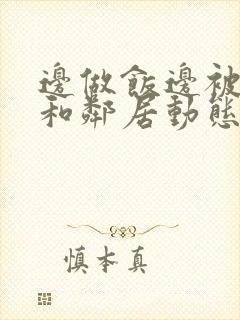 邊做飯邊被
和鄰居動態
慎本真